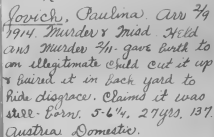 Jovich, Paulina. Arr 2/9
1914. Murder & Misd. Held
ans Murder 2/11. gave birth to
an illegitimate child cut it up
& buried it in back yard to
hide disgrace. Claims it was
still-born. 5-6¼, 27yrs, 137
Austria Domestic.